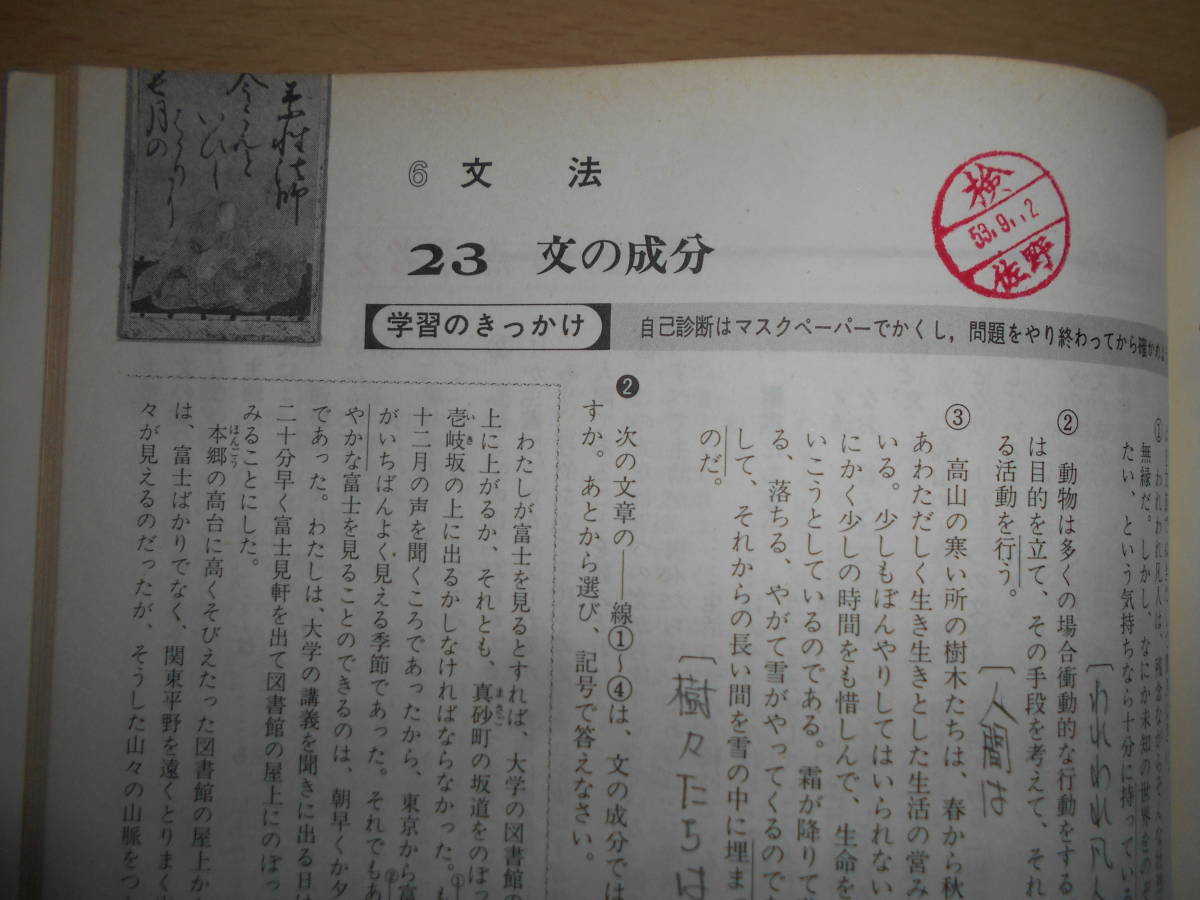 ⑥ 文 法
23 文の成分
検
53.9.12
佐野
学習のきっかけ
自己診断はマスクペーパーでかくし,問題をやり終わってから確かめよ
無縁だ。しかし、なにか未知の世界を
たい、という気持ちなら十分に持っている
〔われわれ凡人
② 動物は多くの場合衝動的な行動をする
は目的を立て、その手段を考えて、それ
る活動を行う。
〔人間は
③ 高山の寒い所の樹木たちは、春から秋
あわただしく生き生きとした生活の営み
いる。少しもぼんやりしてはいられない
にかく少しの時間をも惜しんで、生命を
いこうとしているのである。霜が降りて
る、落ちる、やがて雪がやってくるので
して、それからの長い間を雪の中に埋ま
のだ。
〔樹々たちは
❷ 次の文章の――線①〜④は、文の成分では
すか。あとから選び、記号で答えなさい。
わたしが富士を見るとすれば、大学の図書館の
上に上がるか、それとも、真砂町の坂道をのぼっ
壱岐坂の上に出るかしなければならなかった。も
十二月の声を聞くころであったから、東京から富
がいちばんよく見える季節であった。それでもあ
やかな富士を見ることのできるのは、朝早くか夕
であった。わたしは、大学の講義を聞きに出る日は
二十分早く富士見軒を出て図書館の屋上にのぼっ
みることにした。
本郷の高台に高くそびえたった図書館の屋上か
は、富士ばかりでなく、関東平野を遠くとりまく
々が見えるのだったが、そうした山々の山脈をつ